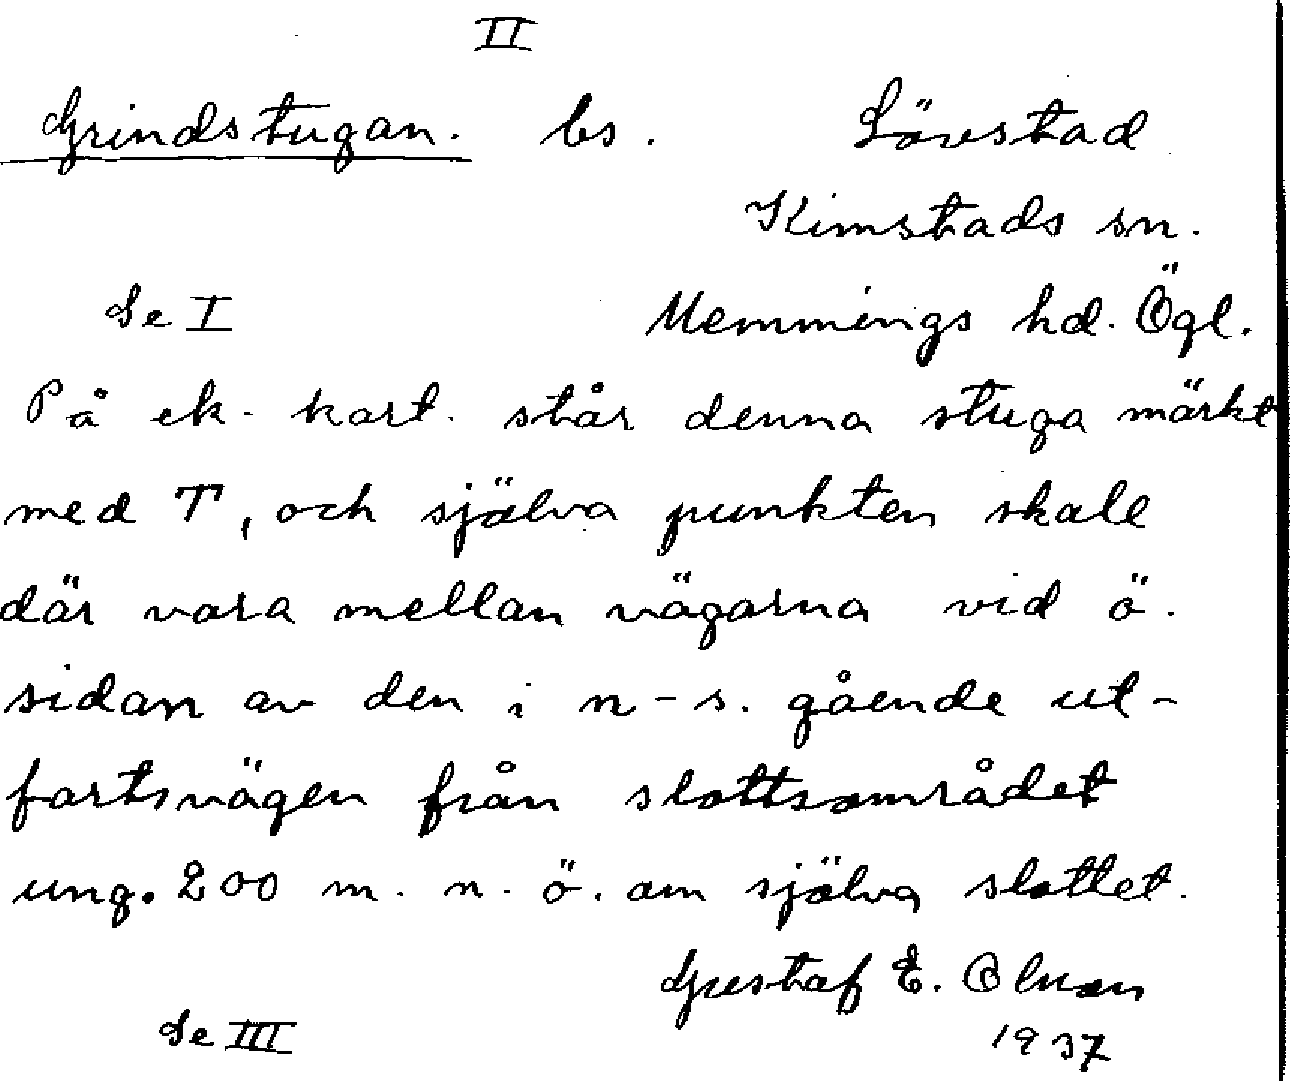 II
Grindstugan. bs. Lövstad
Kimstads sn.
Se I Memmings hd. Ögl.
På ek. kart. står denna stuga märkt
med T, och själva punkten skale
där vara mellan vägarna vid ö.
sidan av den i n-s. gående ut-
fartsvägen från slottsområdet
ung. 200 m. n. ö. om själva slottet.
Gustaf E. Olsson
Se III 1937